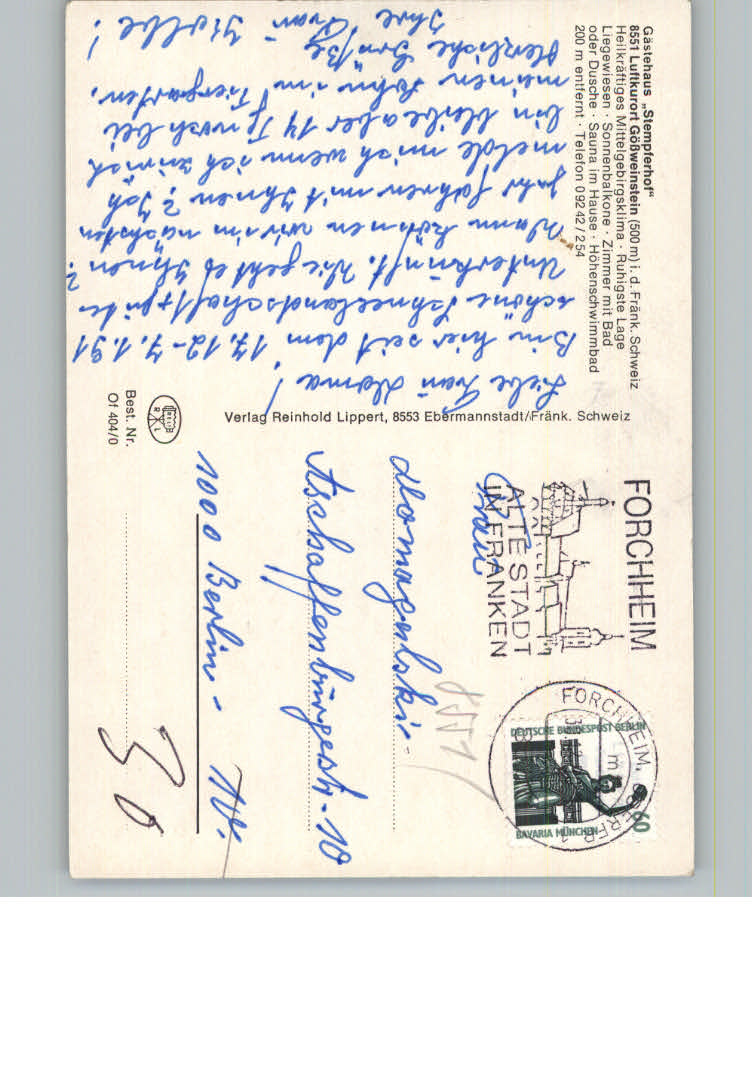 Gästehaus „Stempferhof“
8551 Luftkurort Gößweinstein (500 m) i. d. Fränk. Schweiz
Heilkräftiges Mittelgebirgsklima · Ruhigste Lage
Liegewiesen · Sonnenbalkone · Zimmer mit Bad
oder Dusche · Sauna im Hause · Höhenschwimmbad
200 m entfernt · Telefon 0 92 42 / 254
Liebe Frau Doma!
Bin hier seit dem 17.12-7.1.91
schöne Schneelandschaft + gute
Unterkunft. Wie geht es Ihnen?
Wann können wir im nächsten
Jahr fahren mit Ihnen? Ich
melde mich wenn ich zurück
bin bleibe aber 14 T noch bei
meinen Sohn im Tiergarten.
Herzliche Grüße
Ihre Frau
Verlag Reinhold Lippert, 8553 Ebermannstadt/Fränk. Schweiz
Best. Nr.
Of 404/0
FORCHHEIM
ALTE STADT
IN FRANKEN
FORCHHEIM, OBERFR 1
DEUTSCHE BUNDESPOST BERLIN
60
BAVARIA MÜNCHEN
Frau
Domagalski
Aschaffenburgerstr. 10
1000 Berlin -
30